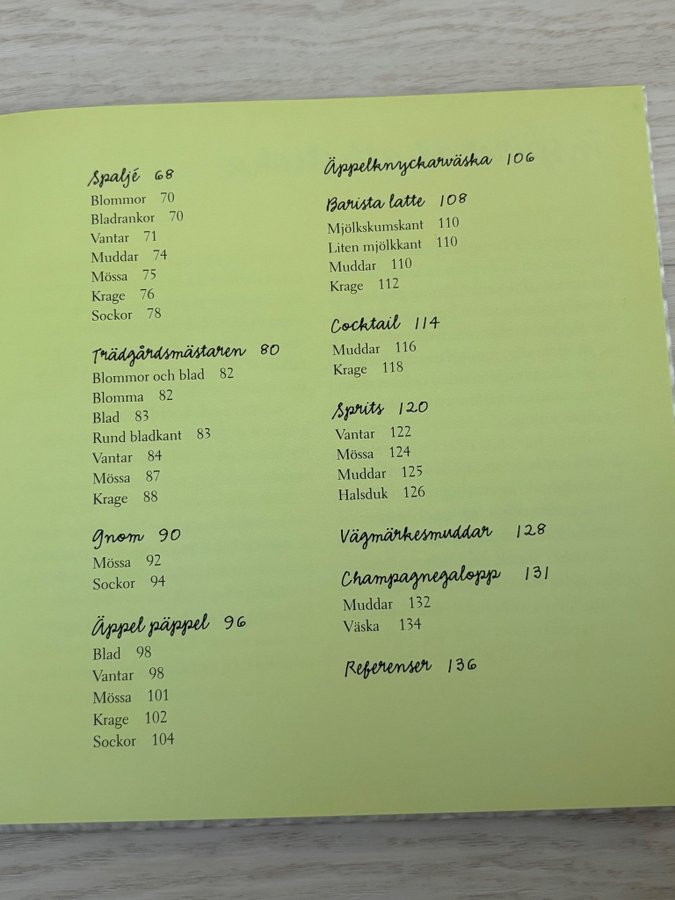 Spaljé 68
Blommor 70
Bladrankor 70
Vantar 71
Muddar 74
Mössa 75
Krage 76
Sockor 78
Trädgårdsmästaren 80
Blommor och blad 82
Blomma 82
Blad 83
Rund bladkant 83
Vantar 84
Mössa 87
Krage 88
Gnom 90
Mössa 92
Sockor 94
Äppel päppel 96
Blad 98
Vantar 98
Mössa 101
Krage 102
Sockor 104
Äppelknyckarväska 106
Barista latte 108
Mjölkskumskant 110
Liten mjölkkant 110
Muddar 110
Krage 112
Cocktail 114
Muddar 116
Krage 118
Sprits 120
Vantar 122
Mössa 124
Muddar 125
Halsduk 126
Vägmärkesmuddar 128
Champagnegalopp 131
Muddar 132
Väska 134
Referenser 136